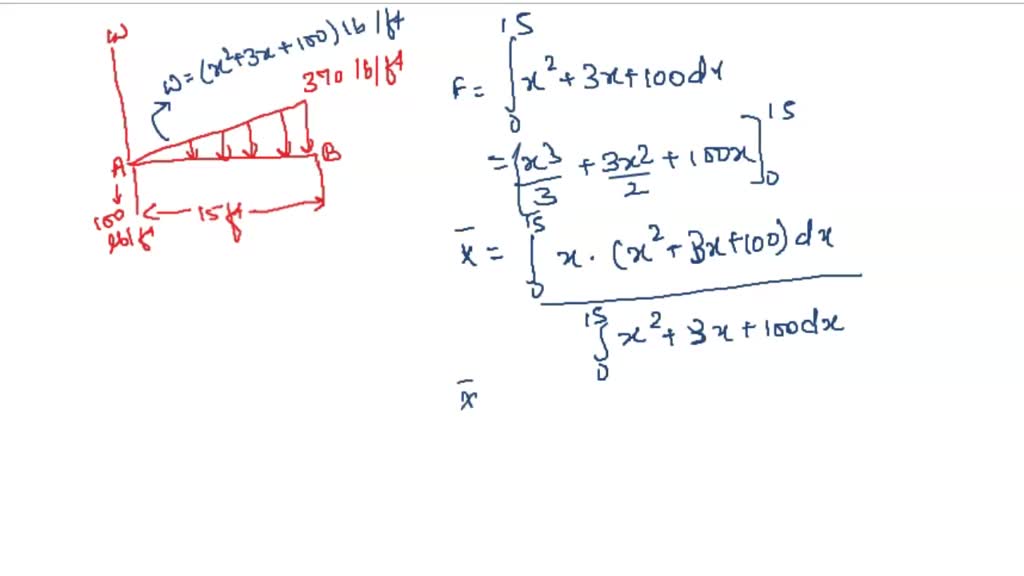 w
w = (x²+3x+100) lb/ft
370 lb/ft
A
B
100
lb/ft
15 ft
F = ∫₀¹⁵ x² + 3x + 100 dx
= [x³/3 + 3x²/2 + 100x]₀¹⁵
x̄ = ∫₀¹⁵ x · (x² + 3x + 100) dx
∫₀¹⁵ x² + 3x + 100 dx
x̄